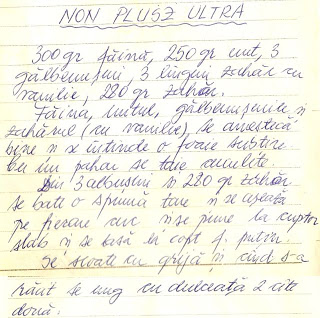 NON PLUSZ ULTRA
300 gr făină, 250 gr unt, 3
gălbenușuri, 3 linguri zahăr cu
vanilie, 280 gr zahăr.
Făina, untul, gălbenușurile și
zahărul (cu vanilie), se amestecă
bine și se întinde o foaie subțire
Cu un pahar se taie
Din 3 albușuri și 280 gr zahăr
se bate o spumă tare și se așează
pe fiecare și se pune la cuptor
slab și se lasă să copt f. puțin.
Se scoate cu grijă și când s-a
răcit se ung cu dulceață 2 câte
două.